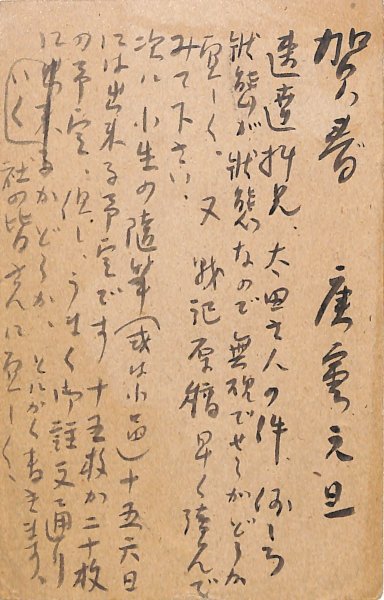 賀春 庚寅元旦
速達拝見、太田さんの件、何しろ
状態が状態なので無理でせうがどうか
宜しく、又戦記原稿早く読んで
みて下さい、
次に小生の随筆(或は小説)十五六日
には出来る予定です 十五枚か二十枚
の予定、但し、うまく御註文通り
に出来るかどうか、とにかく書きます、
社の皆さんに宜しく、